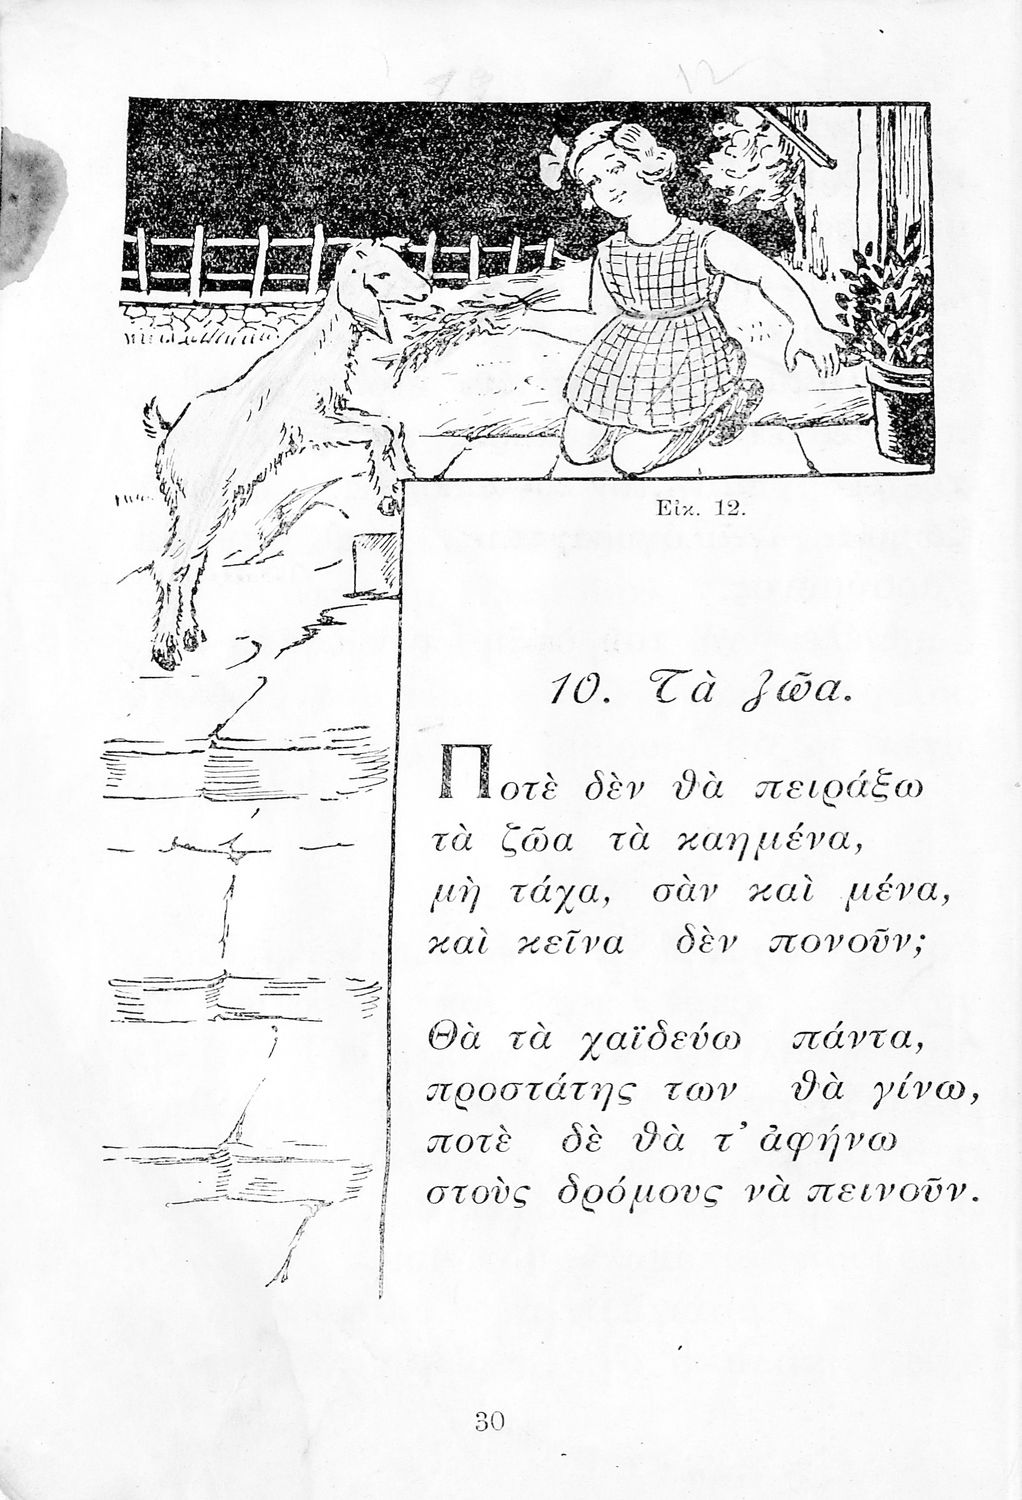 Εἰκ. 12.
10. Τὰ ζῶα.
Ποτὲ δὲν θὰ πειράξω
τὰ ζῶα τὰ καημένα,
μὴ τάχα, σὰν καὶ μένα,
καὶ κεῖνα δὲν πονοῦν;
Θὰ τὰ χαϊδεύω πάντα,
προστάτης των θὰ γίνω,
ποτὲ δὲ θὰ τ’ ἀφήνω
στοὺς δρόμους νὰ πεινοῦν.
30